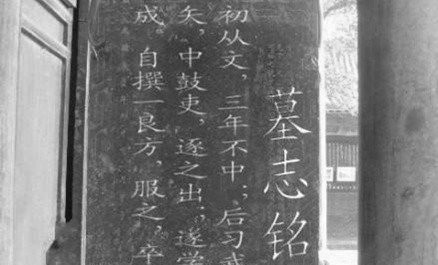 墓志铭
初从文，三年不中；后习武
矢，中鼓吏，逐之出；遂学
成，自撰一良方，服之，卒